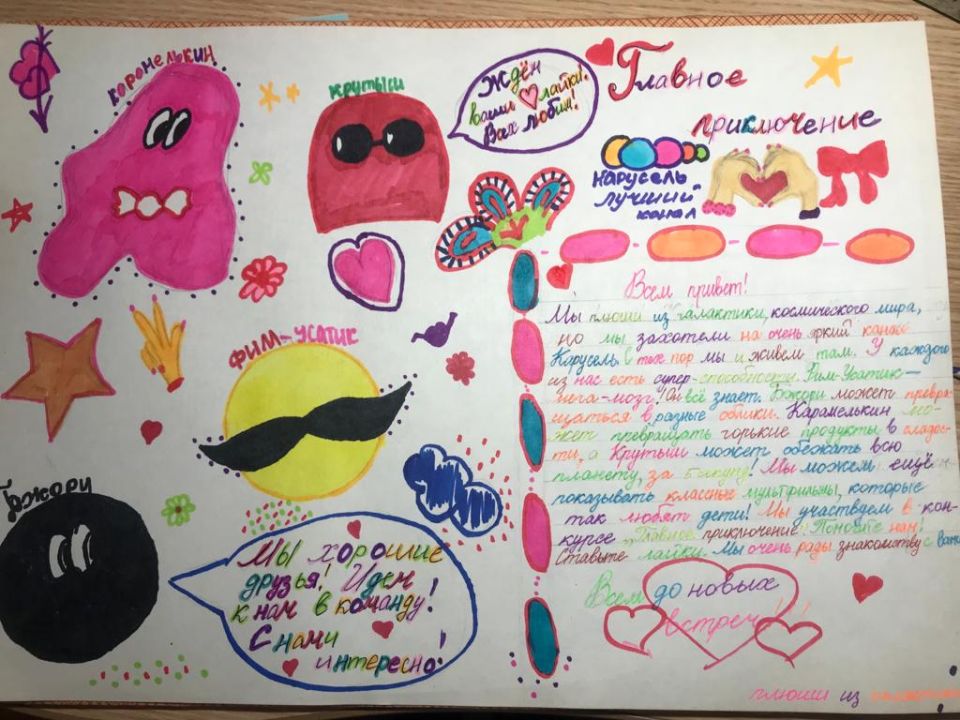 коромелькин
крутыси
Ждём
ваши лайки!
Вах любим!
Главное
приключение
Карусель
лучший
канал
Всем привет!
Мы плюши из галактики, космического мира,
но мы захотели на очень яркий канал
Карусель. С тех пор мы и живем там. У каждого
из нас есть супер-способности. Фим-Усатик –
мега-мозг! Он всё знает. Бжори может превра-
щаться в разные облики. Карамелькин мо-
жет превращать горькие продукты в сладос-
ти, а Крутыши может обежать всю
планету, за 5 секунд! Мы можем ещё
показывать классные мультфильмы, которые
так любят дети! Мы участвуем в кон-
курсе „Главное приключение". нам!
Ставьте лайки. Мы очень рады знакомству с вами
Всем до новых
встреч!!
плюши из
Фим-Усатик
Бжори
Мы хорошие
друзья! Идем
к нам в команду!
С нами
интересно!